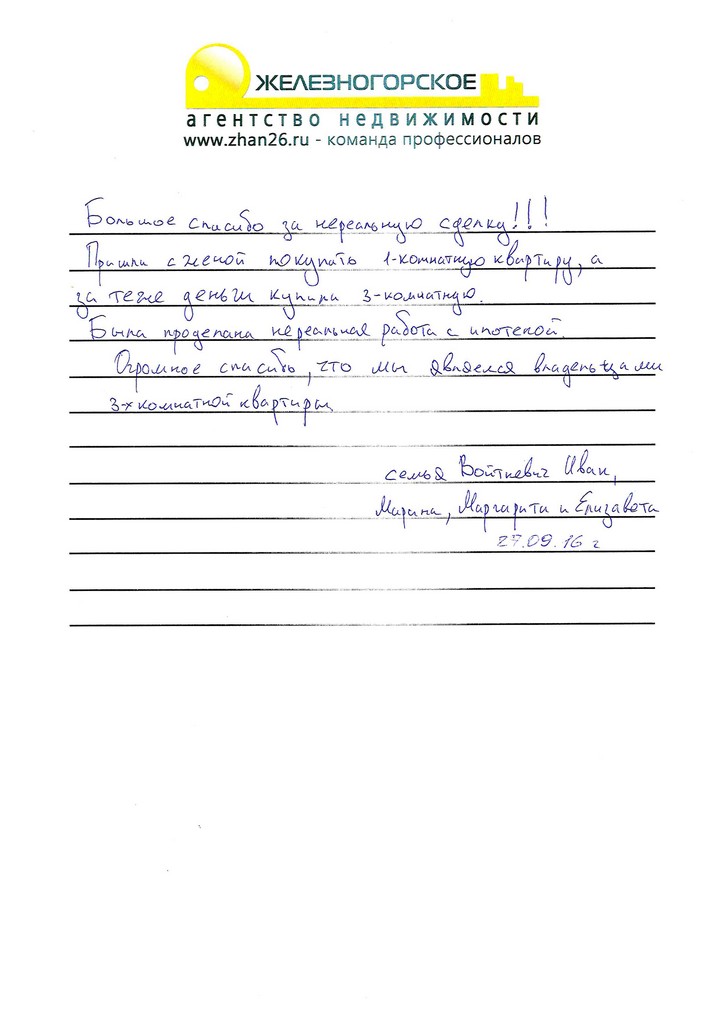 ЖЕЛЕЗНОГОРСКОЕ
агентство недвижимости
www.zhan26.ru - команда профессионалов
Большое спасибо за нереальную сделку!!!
Пришли с женой покупать 1-комнатную квартиру, а
за теже деньги купили 3-комнатную.
Была проделана нереальная работа с ипотекой.
Огромное спасибо, что мы являемся владельцами
3-х комнатной квартиры
семья Войткевич Иван,
Марина, Маргарита и Елизавета
27.09.16 г